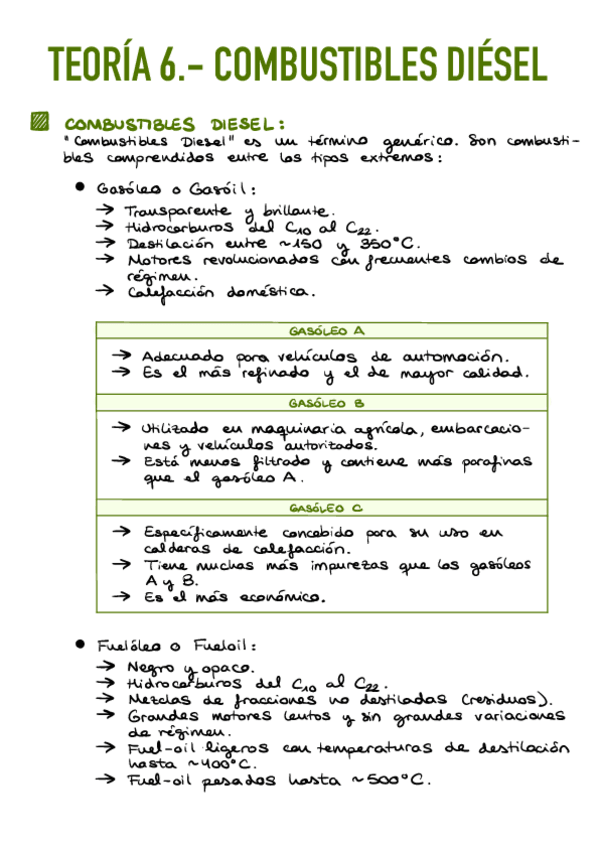 TEORÍA 6.- COMBUSTIBLES DIÉSEL
COMBUSTIBLES DIESEL:
"Combustibles Diesel" es un término genérico. Son combusti-
bles comprendidos entre los tipos extremos:
• Gasóleo o Gasóil:
→ Transparente y brillante.
→ Hidrocarburos del C10 al C22.
→ Destilación entre ~150 y 350°C.
→ Motores revolucionados con frecuentes cambios de
régimen.
→ Calefacción doméstica.
GASÓLEO A
→ Adecuado para vehículos de automoción.
→ Es el más refinado y el de mayor calidad.
GASÓLEO B
→ Utilizado en maquinaria agrícola, embarcacio-
nes y vehículos autorizados.
→ Está menos filtrado y contiene más parafinas
que el gasóleo A.
GASÓLEO C
→ Específicamente concebido para su uso en
calderas de calefacción.
→ Tiene muchas más impurezas que los gasóleos
A y B.
→ Es el más económico.
• Fuelóleo o Fueloil:
→ Negro y opaco.
→ Hidrocarburos del C10 al C22.
→ Mezclas de fracciones no destiladas (residuos).
→ Grandes motores lentos y sin grandes variaciones
de régimen.
→ Fuel-oil ligeros con temperaturas de destilación
hasta ~400°C.
→ Fuel-oil pesados hasta ~500°C.